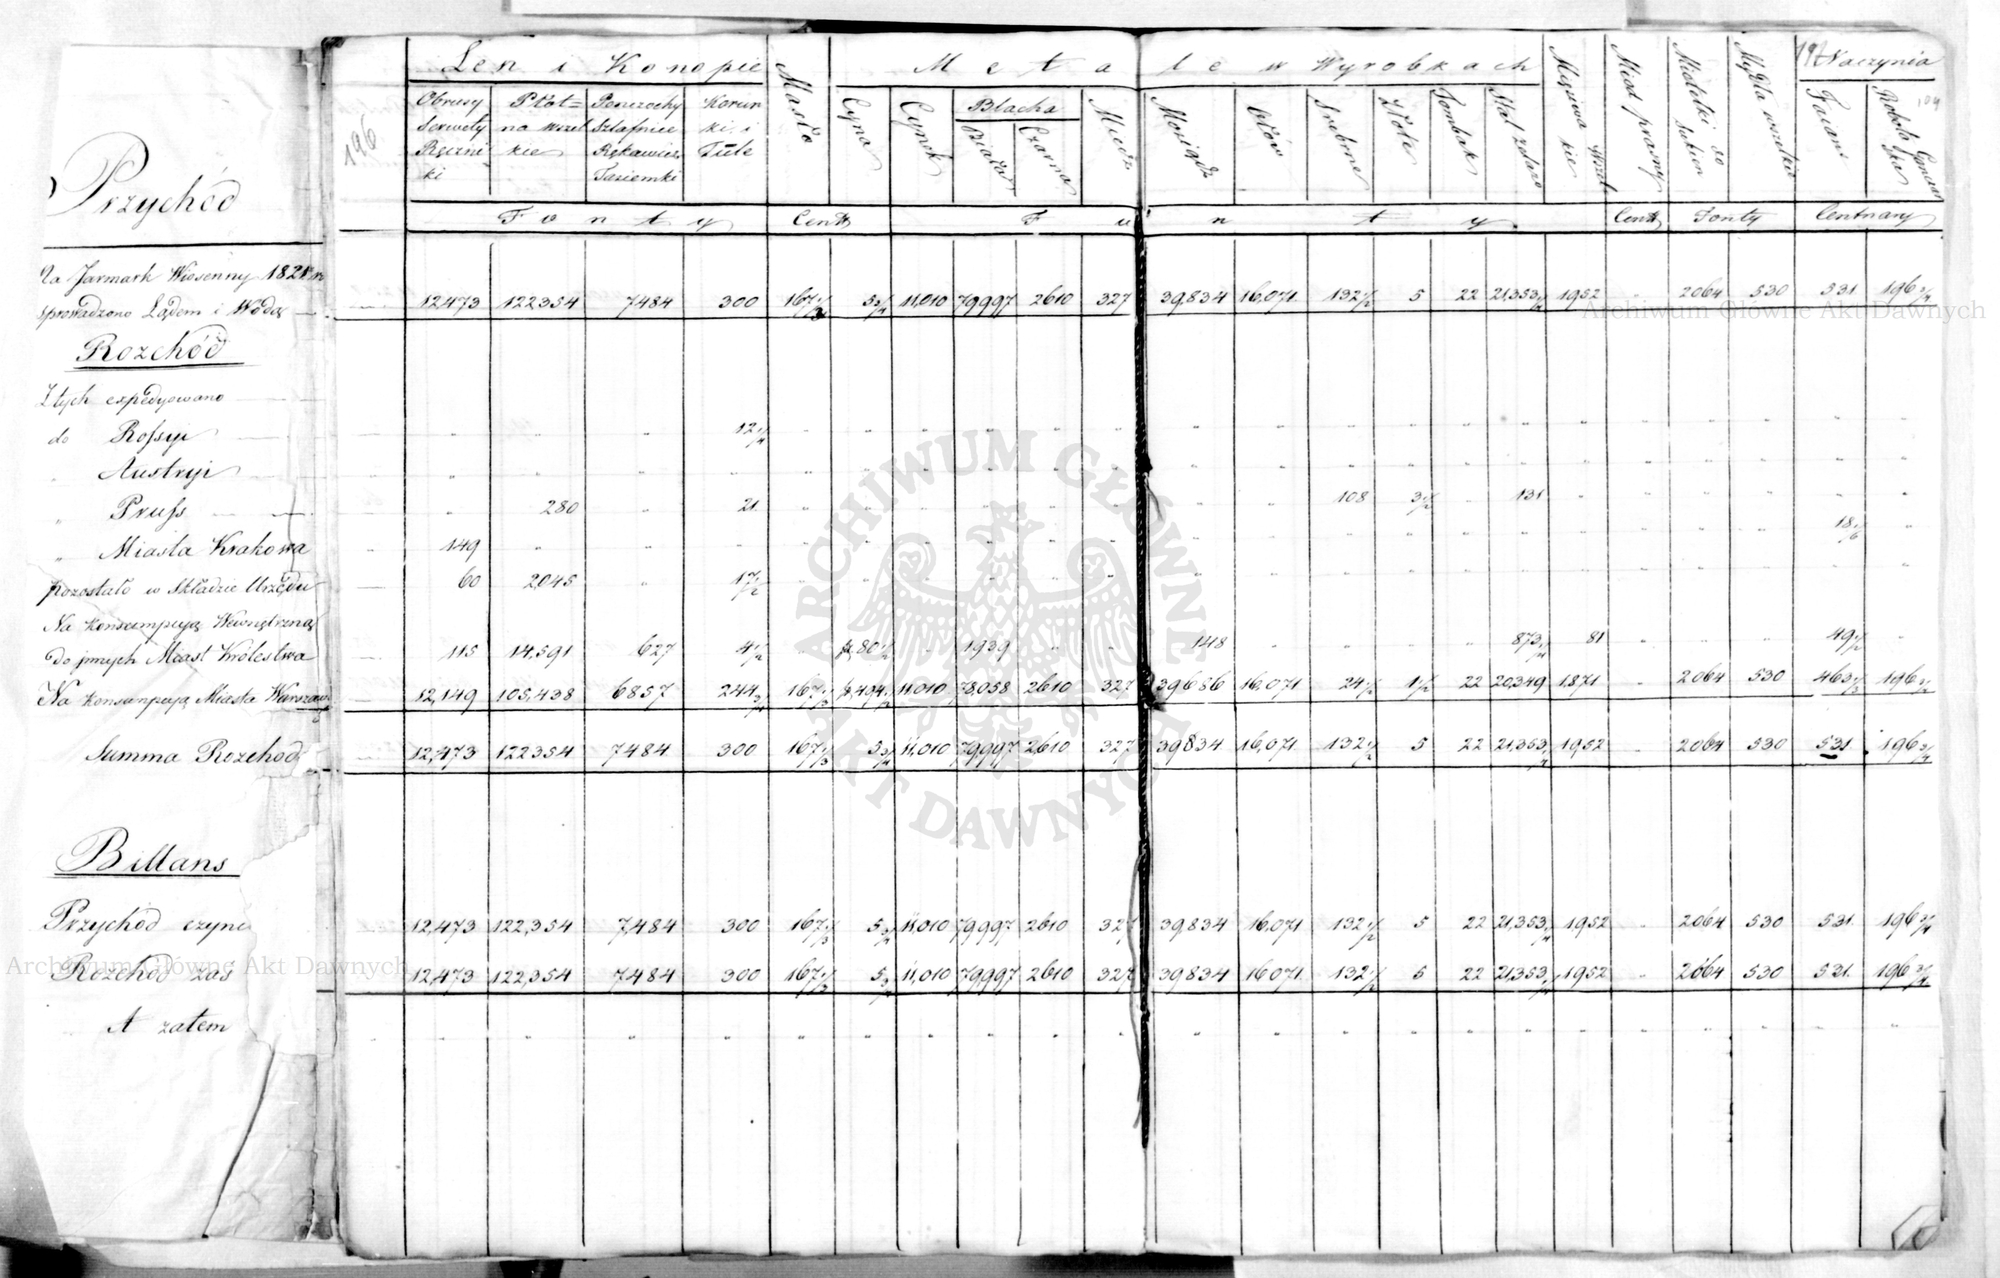 196
197
104
Len i Konopie
Masło
Metale w Wyrobkach
Mięsiwa wszelkie
Miód prasny
Naczynia
Obrusy Serwety Ręczniki
Płótna wszelkie
Pończochy Szlafnice Rękawicz. Tasiemki
Koronki i Tiule
Cyna
Cynek
Blacha
Biała
Czarna
Miedź
Mosiądz
Ołów
Srebro
Złoto
Tombak
Stal żelazo
Mydła wszelkie
Fajans
Fonty
Centr
Funty
Centr
Fonty
Centnary
Przychód
Na Jarmark Wiosenny 182
sprowadzono Lądem i Wodą 12,473 122,354 7484 300 167 1/3 5 3/4 11,010 79,997 2610 327 39,834 16,071 132 1/2 5 22 21,353 1/4 1952 " 2064 530 531 196 3/4
Rozchód
Z tych expedyowano
do Rossyi " " " 12 1/4
" Austryi
" Pruss " 280 " 21 108 3 1/2 " 131
" Miasta Krakowa 149 18 1/6
pozostało w Składzie Urzędu 60 2,045 " 17 1/2
Na konsumpcyą Wewnętrzną
do jnnych Miast Królestwa 115 14,591 627 4 1/2 80 1/2 " 1939 " " 148 873 1/4 81 49 1/2
Na konsumpcyą Miasta Warszawy 12,149 105,438 6857 244 3/4 167 1/3 494 11,010 78,058 2610 327 39686 16,071 24 1/2 1 1/2 22 20,349 1,871 " 2064 530 463 1/3 196 3/4
Summa Rozchod 12,473 122,354 7484 300 167 1/3 5 3/4 11,010 79,997 2610 327 39834 16,071 132 1/2 5 22 21,353 1/4 1952 " 2064 530 531 196 3/4
Billans
Przychód czyni 12,473 122,354 7,484 300 167 1/3 5 3/4 11,010 79,997 2610 327 39,834 16,071 132 1/2 5 22 21,353 1/4 1952 " 2064 530 531 196 3/4
Rozchód zaś 12,473 122,354 7484 300 167 1/3 5 3/4 11,010 79,997 2610 327 39834 16071 132 1/2 5 22 21,353 1/4 1952 " 2064 530 531 196 3/4
A zatem
ARCHIWUM GŁÓWNE AKT DAWNYCH
Archiwum Główne Akt Dawnych
Archiwum Główne Akt Dawnych